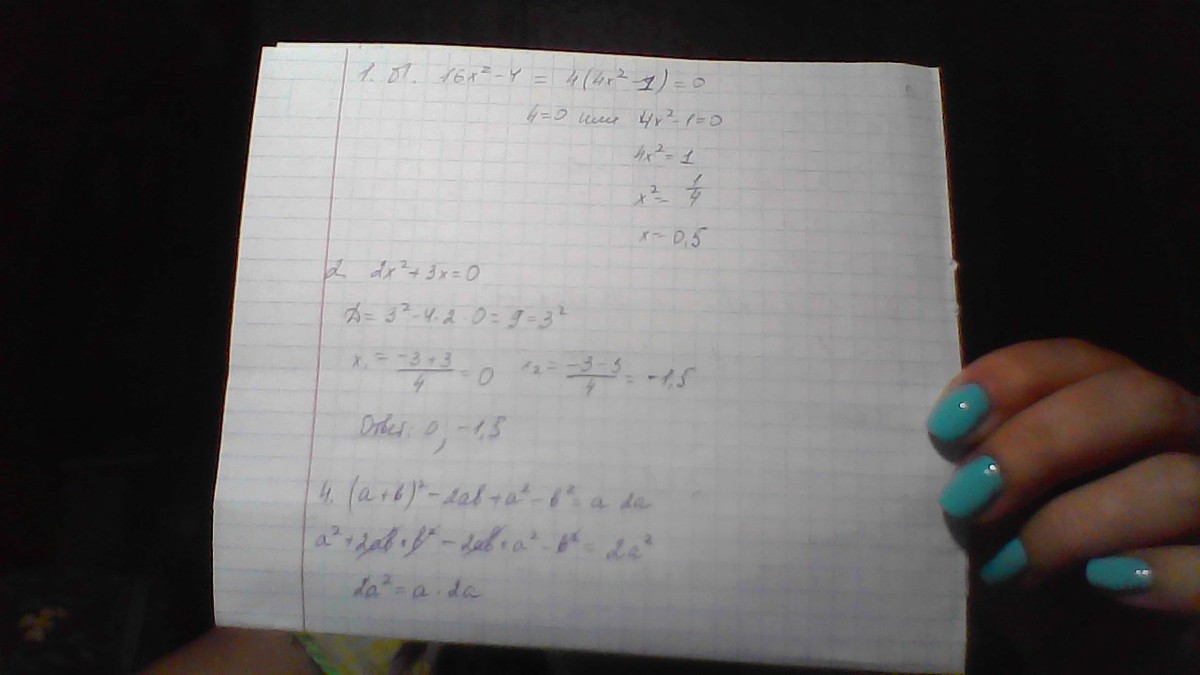 1. 16x² - 4 = 4(4x² - 1) = 0
4=0 или 4x² - 1 = 0
4x² = 1
x² = 1/4
x = 0,5
2. 2x² + 3x = 0
D = 3² - 4 · 2 · 0 = 9 = 3²
x₁ = (-3+3)/4 = 0 x₂ = (-3-3)/4 = -1,5
Ответ: 0, -1,5
4. (a+b)² - 2ab + a² - b² = a 2a
a² + 2ab + b² - 2ab + a² - b² = 2a²
2a² = a · 2a